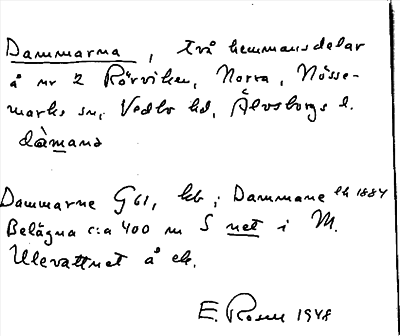 Dammarna, två hemmansdelar
å nr 2 Rörviken, Norra, Nösse-
marks sn, Vedbo hd, Älvsborgs l.
dàmana
Dammarne G61, kb; Dammane ek 1884
Belägna c:a 400 m S net i M.
Ulevattnet å ek.
E. Rosell 1948